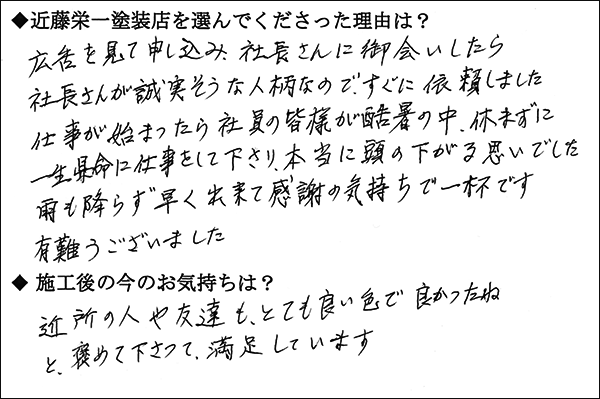 ◆近藤栄一塗装店を選んでくださった理由は？
広告を見て申し込み、社長さんに御会いしたら
社長さんが誠実そうな人柄なので、すぐに依頼しました
仕事が始まったら社員の皆様が酷暑の中、休まずに
一生県命に仕事をして下さり、本当に頭の下がる思いでした
雨も降らず早く出来て感謝の気持ちで一杯です
有難うございました
◆ 施工後の今のお気持ちは？
近所の人や友達も、とても良い色で良かったね
と、褒めて下さって、満足しています